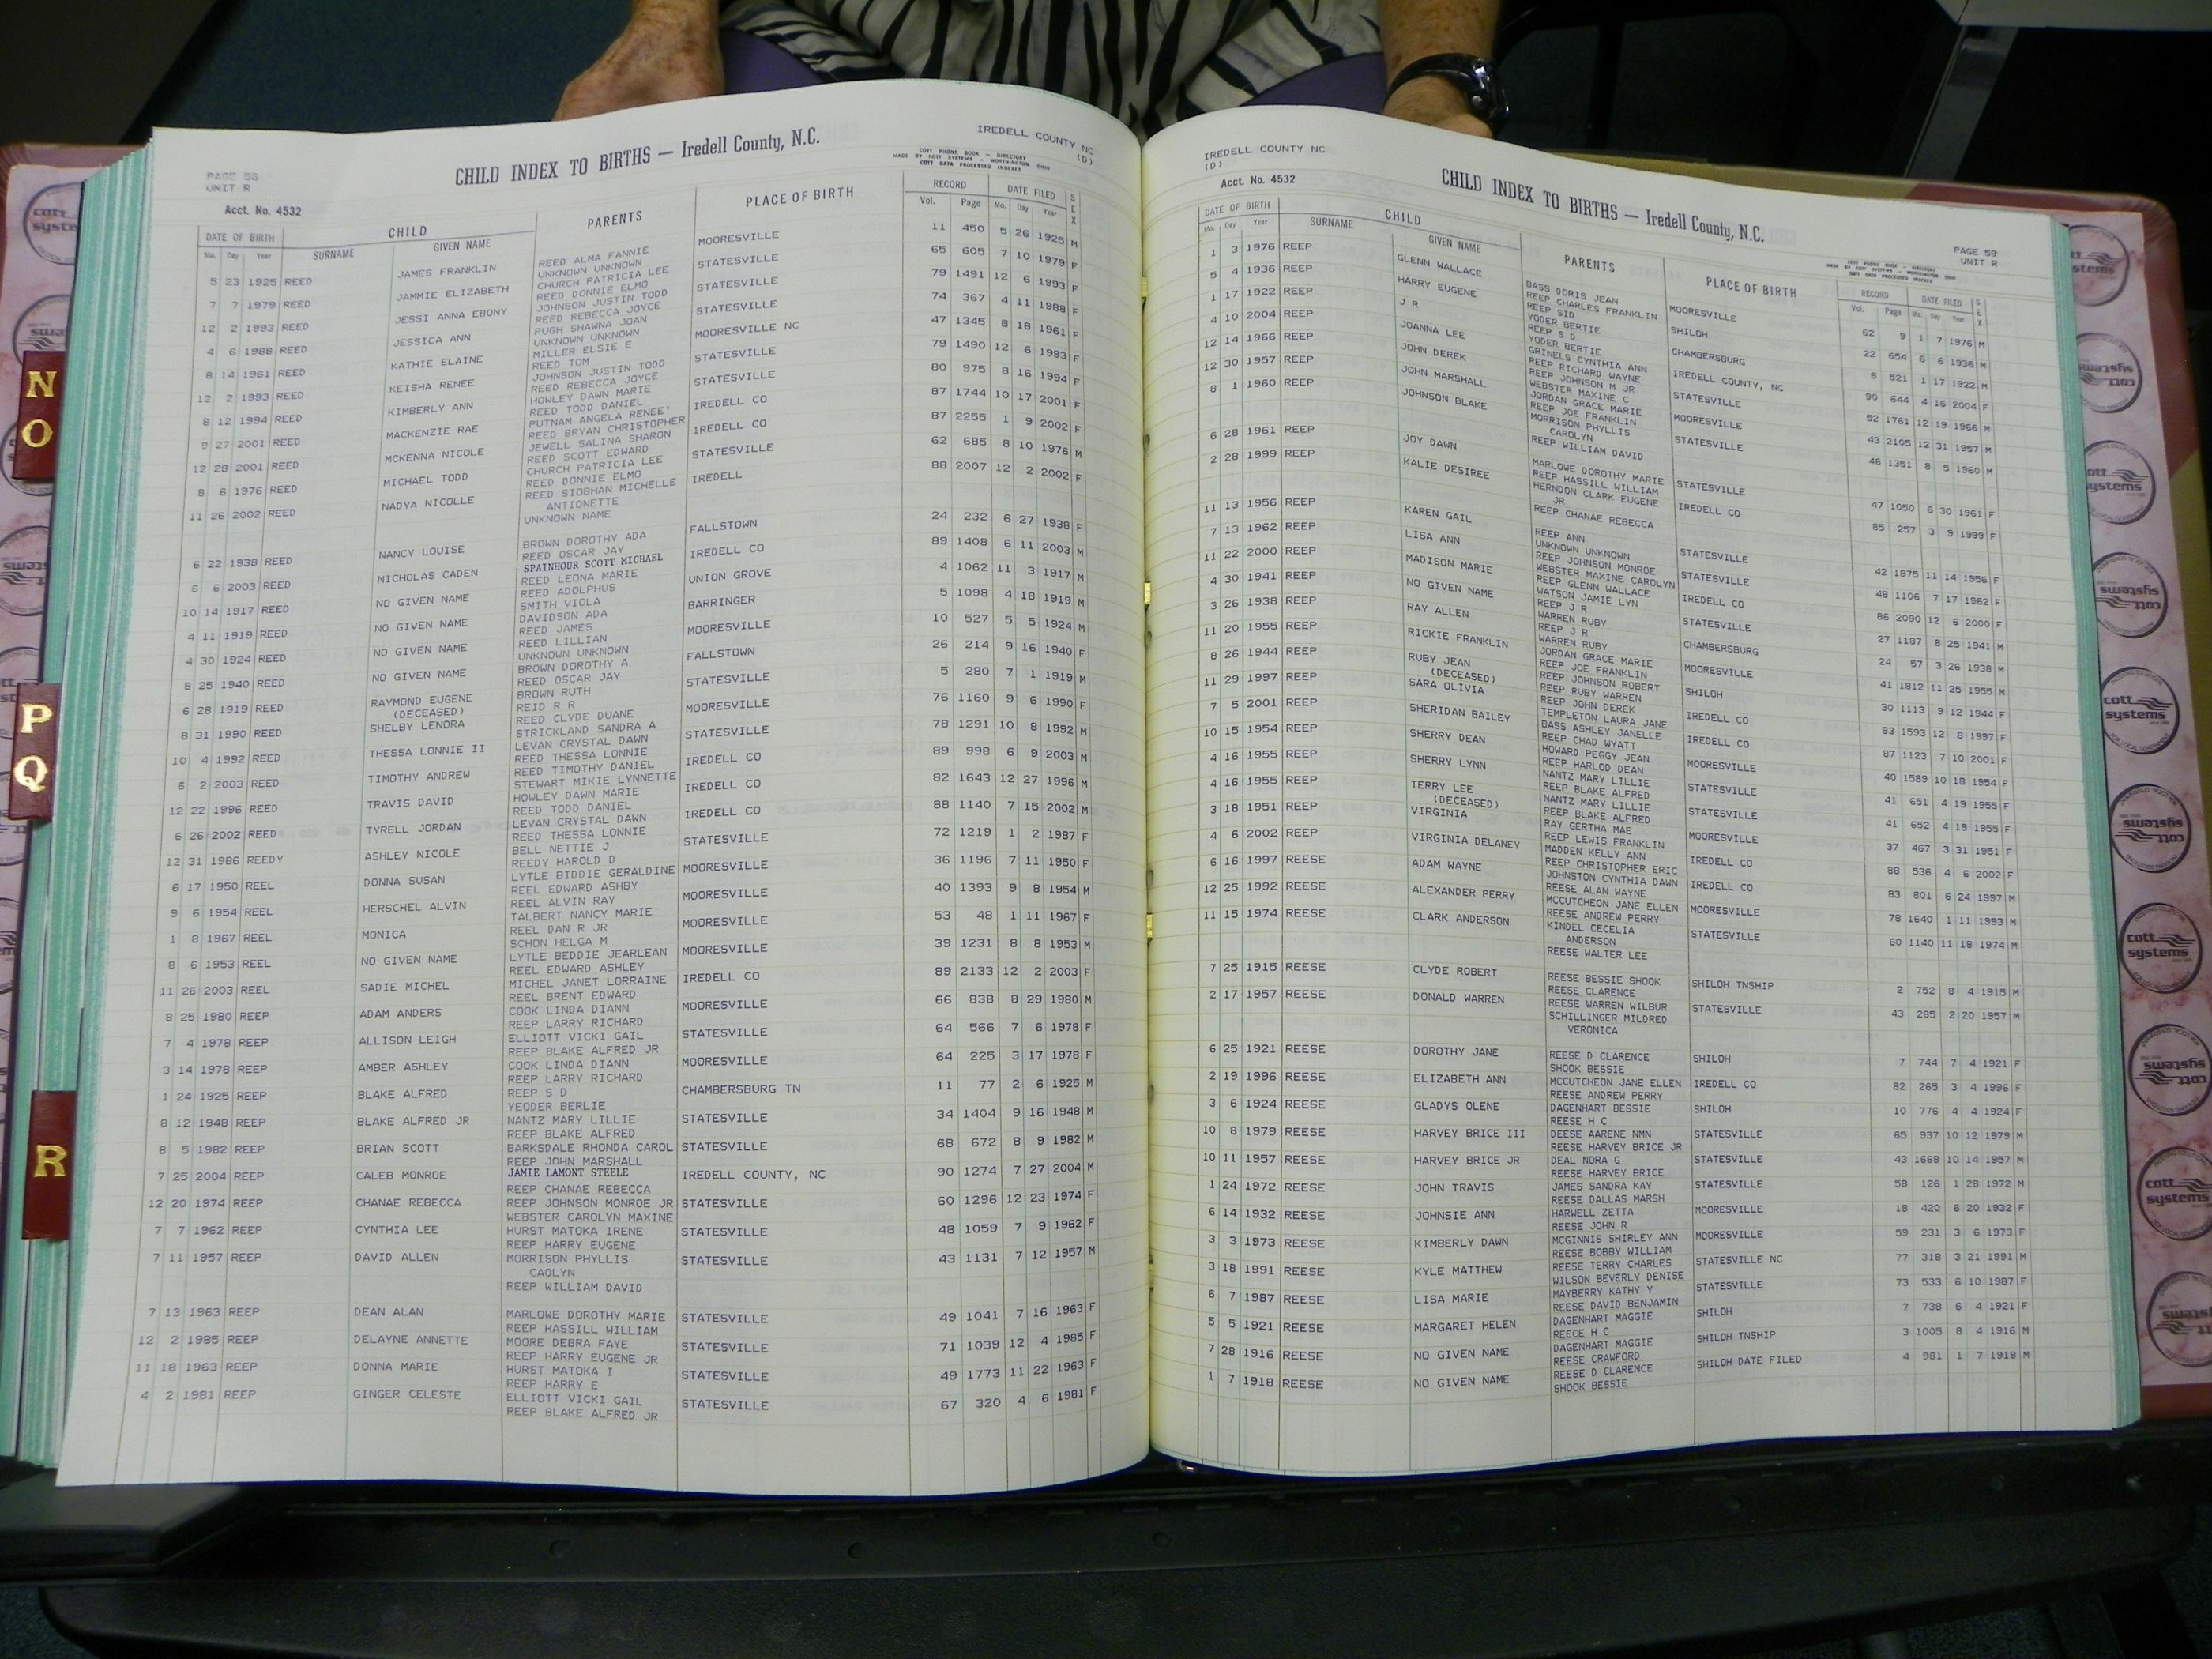 IREDELL COUNTY NC
(D)
COTT PHONE BOOK — DIRECTORY
MADE BY COTT SYSTEMS — WORTHINGTON OHIO
COTT DATA PROCESSED INDEXES
CHILD INDEX TO BIRTHS — Iredell County, N.C.
PAGE 58
UNIT R
Acct. No. 4532
DATE OF BIRTH CHILD PARENTS PLACE OF BIRTH RECORD DATE FILED SEX
Mo. Day Year SURNAME GIVEN NAME Vol. Page Mo. Day Year
5 23 1925 REED JAMES FRANKLIN REED ALMA FANNIE MOORESVILLE 11 450 5 26 1925 M
UNKNOWN UNKNOWN
7 7 1979 REED JAMMIE ELIZABETH CHURCH PATRICIA LEE STATESVILLE 65 605 7 10 1979 F
REED DONNIE ELMO
12 2 1993 REED JESSI ANNA EBONY JOHNSON JUSTIN TODD STATESVILLE 79 1491 12 6 1993 F
REED REBECCA JOYCE
4 6 1988 REED JESSICA ANN PUGH SHAWNA JOAN STATESVILLE 74 367 4 11 1988 F
UNKNOWN UNKNOWN
8 14 1961 REED KATHIE ELAINE MILLER ELSIE E MOORESVILLE NC 47 1345 8 18 1961 F
REED TOM
12 2 1993 REED KEISHA RENEE JOHNSON JUSTIN TODD STATESVILLE 79 1490 12 6 1993 F
REED REBECCA JOYCE
8 12 1994 REED KIMBERLY ANN HOWLEY DAWN MARIE STATESVILLE 80 975 8 16 1994 F
REED TODD DANIEL
9 27 2001 REED MACKENZIE RAE PUTNAM ANGELA RENEE' IREDELL CO 87 1744 10 17 2001 F
REED BRYAN CHRISTOPHER
12 28 2001 REED MCKENNA NICOLE JEWELL SALINA SHARON IREDELL CO 87 2255 1 9 2002 F
REED SCOTT EDWARD
8 6 1976 REED MICHAEL TODD CHURCH PATRICIA LEE STATESVILLE 62 685 8 10 1976 M
REED DONNIE ELMO
11 26 2002 REED NADYA NICOLLE REED SIOBHAN MICHELLE IREDELL 88 2007 12 2 2002 F
ANTIONETTE
UNKNOWN NAME
6 22 1938 REED NANCY LOUISE BROWN DOROTHY ADA FALLSTOWN 24 232 6 27 1938 F
REED OSCAR JAY
6 6 2003 REED NICHOLAS CADEN SPAINHOUR SCOTT MICHAEL IREDELL CO 89 1408 6 11 2003 M
REED LEONA MARIE
10 14 1917 REED NO GIVEN NAME REED ADOLPHUS UNION GROVE 4 1062 11 3 1917 M
SMITH VIOLA
4 11 1919 REED NO GIVEN NAME DAVIDSON ADA BARRINGER 5 1098 4 18 1919 M
REED JAMES
4 30 1924 REED NO GIVEN NAME REED LILLIAN MOORESVILLE 10 527 5 5 1924 M
UNKNOWN UNKNOWN
8 25 1940 REED NO GIVEN NAME BROWN DOROTHY A FALLSTOWN 26 214 9 16 1940 F
REED OSCAR JAY
6 28 1919 REED RAYMOND EUGENE BROWN RUTH STATESVILLE 5 280 7 1 1919 M
(DECEASED) REID R R
8 31 1990 REED SHELBY LENORA REED CLYDE DUANE MOORESVILLE 76 1160 9 6 1990 F
STRICKLAND SANDRA A
10 4 1992 REED THESSA LONNIE II LEVAN CRYSTAL DAWN STATESVILLE 78 1291 10 8 1992 M
REED THESSA LONNIE
6 2 2003 REED TIMOTHY ANDREW REED TIMOTHY DANIEL IREDELL CO 89 998 6 9 2003 M
STEWART MIKIE LYNNETTE
12 22 1996 REED TRAVIS DAVID HOWLEY DAWN MARIE IREDELL CO 82 1643 12 27 1996 M
REED TODD DANIEL
6 26 2002 REED TYRELL JORDAN LEVAN CRYSTAL DAWN IREDELL CO 88 1140 7 15 2002 M
REED THESSA LONNIE
12 31 1986 REEDY ASHLEY NICOLE BELL NETTIE J STATESVILLE 72 1219 1 2 1987 F
REEDY HAROLD D
6 17 1950 REEL DONNA SUSAN LYTLE BIDDIE GERALDINE MOORESVILLE 36 1196 7 11 1950 F
REEL EDWARD ASHBY
9 6 1954 REEL HERSCHEL ALVIN REEL ALVIN RAY MOORESVILLE 40 1393 9 8 1954 M
TALBERT NANCY MARIE
1 8 1967 REEL MONICA REEL DAN R JR MOORESVILLE 53 48 1 11 1967 F
SCHON HELGA M
8 6 1953 REEL NO GIVEN NAME LYTLE BEDDIE JEARLEAN MOORESVILLE 39 1231 8 8 1953 M
REEL EDWARD ASHLEY
11 26 2003 REEL SADIE MICHEL MICHEL JANET LORRAINE IREDELL CO 89 2133 12 2 2003 F
REEL BRENT EDWARD
8 25 1980 REEP ADAM ANDERS COOK LINDA DIANN MOORESVILLE 66 838 8 29 1980 M
REEP LARRY RICHARD
7 4 1978 REEP ALLISON LEIGH ELLIOTT VICKI GAIL STATESVILLE 64 566 7 6 1978 F
REEP BLAKE ALFRED JR
3 14 1978 REEP AMBER ASHLEY COOK LINDA DIANN MOORESVILLE 64 225 3 17 1978 F
REEP LARRY RICHARD
1 24 1925 REEP BLAKE ALFRED REEP S D CHAMBERSBURG TN 11 77 2 6 1925 M
YEODER BERLIE
8 12 1948 REEP BLAKE ALFRED JR NANTZ MARY LILLIE STATESVILLE 34 1404 9 16 1948 M
REEP BLAKE ALFRED
8 5 1982 REEP BRIAN SCOTT BARKSDALE RHONDA CAROL STATESVILLE 68 672 8 9 1982 M
REEP JOHN MARSHALL
7 25 2004 REEP CALEB MONROE JAMIE LAMONT STEELE IREDELL COUNTY, NC 90 1274 7 27 2004 M
REEP CHANAE REBECCA
12 20 1974 REEP CHANAE REBECCA REEP JOHNSON MONROE JR STATESVILLE 60 1296 12 23 1974 F
WEBSTER CAROLYN MAXINE
7 7 1962 REEP CYNTHIA LEE HURST MATOKA IRENE STATESVILLE 48 1059 7 9 1962 F
REEP HARRY EUGENE
7 11 1957 REEP DAVID ALLEN MORRISON PHYLLIS STATESVILLE 43 1131 7 12 1957 M
CAOLYN
REEP WILLIAM DAVID
7 13 1963 REEP DEAN ALAN MARLOWE DOROTHY MARIE STATESVILLE 49 1041 7 16 1963 F
REEP HASSILL WILLIAM
12 2 1985 REEP DELAYNE ANNETTE MOORE DEBRA FAYE STATESVILLE 71 1039 12 4 1985 F
REEP HARRY EUGENE JR
11 18 1963 REEP DONNA MARIE HURST MATOKA I STATESVILLE 49 1773 11 22 1963 F
REEP HARRY E
4 2 1981 REEP GINGER CELESTE ELLIOTT VICKI GAIL STATESVILLE 67 320 4 6 1981 F
REEP BLAKE ALFRED JR
IREDELL COUNTY NC
(D)
Acct. No. 4532
CHILD INDEX TO BIRTHS — Iredell County, N.C.
PAGE 59
UNIT R
COTT PHONE BOOK — DIRECTORY
MADE BY COTT SYSTEMS — WORTHINGTON OHIO
COTT DATA PROCESSED INDEXES
DATE OF BIRTH CHILD PARENTS PLACE OF BIRTH RECORD DATE FILED SEX
Mo. Day Year SURNAME GIVEN NAME Vol. Page Mo. Day Year
1 3 1976 REEP GLENN WALLACE BASS DORIS JEAN MOORESVILLE 62 9 1 7 1976 M
REEP CHARLES FRANKLIN
5 4 1936 REEP HARRY EUGENE REEP SID SHILOH 22 654 6 6 1936 M
YODER BERTIE
1 17 1922 REEP J R REEP S D CHAMBERSBURG 8 521 1 17 1922 M
YODER BERTIE
4 10 2004 REEP JOANNA LEE GRINELS CYNTHIA ANN IREDELL COUNTY, NC 90 644 4 16 2004 F
REEP RICHARD WAYNE
12 14 1966 REEP JOHN DEREK REEP JOHNSON M JR STATESVILLE 52 1761 12 19 1966 M
WEBSTER MAXINE C
12 30 1957 REEP JOHN MARSHALL JORDAN GRACE MARIE MOORESVILLE 43 2105 12 31 1957 M
REEP JOE FRANKLIN
8 1 1960 REEP JOHNSON BLAKE MORRISON PHYLLIS STATESVILLE 46 1351 8 5 1960 M
CAROLYN
REEP WILLIAM DAVID
6 28 1961 REEP JOY DAWN MARLOWE DOROTHY MARIE STATESVILLE 47 1050 6 30 1961 F
REEP HASSILL WILLIAM
2 28 1999 REEP KALIE DESIREE HERNDON CLARK EUGENE IREDELL CO 85 257 3 9 1999 F
JR
REEP CHANAE REBECCA
11 13 1956 REEP KAREN GAIL REEP ANN STATESVILLE 42 1875 11 14 1956 F
UNKNOWN UNKNOWN
7 13 1962 REEP LISA ANN REEP JOHNSON MONROE STATESVILLE 48 1106 7 17 1962 F
WEBSTER MAXINE CAROLYN
11 22 2000 REEP MADISON MARIE REEP GLENN WALLACE IREDELL CO 86 2090 12 6 2000 F
WATSON JAMIE LYN
4 30 1941 REEP NO GIVEN NAME REEP J R STATESVILLE 27 1187 8 25 1941 M
WARREN RUBY
3 26 1938 REEP RAY ALLEN REEP J R CHAMBERSBURG 24 57 3 26 1938 M
WARREN RUBY
11 20 1955 REEP RICKIE FRANKLIN JORDAN GRACE MARIE MOORESVILLE 41 1812 11 25 1955 M
REEP JOE FRANKLIN
8 26 1944 REEP RUBY JEAN REEP JOHNSON ROBERT SHILOH 30 1113 9 12 1944 F
(DECEASED) REEP RUBY WARREN
11 29 1997 REEP SARA OLIVIA REEP JOHN DEREK IREDELL CO 83 1593 12 8 1997 F
TEMPLETON LAURA JANE
7 5 2001 REEP SHERIDAN BAILEY BASS ASHLEY JANELLE IREDELL CO 87 1123 7 10 2001 F
REEP CHAD WYATT
10 15 1954 REEP SHERRY DEAN HOWARD PEGGY JEAN MOORESVILLE 40 1589 10 18 1954 F
REEP HARLOD DEAN
4 16 1955 REEP SHERRY LYNN NANTZ MARY LILLIE STATESVILLE 41 651 4 19 1955 F
REEP BLAKE ALFRED
4 16 1955 REEP TERRY LEE NANTZ MARY LILLIE STATESVILLE 41 652 4 19 1955 F
(DECEASED) REEP BLAKE ALFRED
3 18 1951 REEP VIRGINIA RAY GERTHA MAE MOORESVILLE 37 467 3 31 1951 F
REEP LEWIS FRANKLIN
4 6 2002 REEP VIRGINIA DELANEY MADDEN KELLY ANN IREDELL CO 88 536 4 6 2002 F
REEP CHRISTOPHER ERIC
6 16 1997 REESE ADAM WAYNE JOHNSTON CYNTHIA DAWN IREDELL CO 83 801 6 24 1997 M
REESE ALAN WAYNE
12 25 1992 REESE ALEXANDER PERRY MCCUTCHEON JANE ELLEN MOORESVILLE 78 1640 1 11 1993 M
REESE ANDREW PERRY
11 15 1974 REESE CLARK ANDERSON KINDEL CECELIA STATESVILLE 60 1140 11 18 1974 M
ANDERSON
REESE WALTER LEE
7 25 1915 REESE CLYDE ROBERT REESE BESSIE SHOOK SHILOH TNSHIP 2 752 8 4 1915 M
REESE CLARENCE
2 17 1957 REESE DONALD WARREN REESE WARREN WILBUR STATESVILLE 43 285 2 20 1957 M
SCHILLINGER MILDRED
VERONICA
6 25 1921 REESE DOROTHY JANE REESE D CLARENCE SHILOH 7 744 7 4 1921 F
SHOOK BESSIE
2 19 1996 REESE ELIZABETH ANN MCCUTCHEON JANE ELLEN IREDELL CO 82 265 3 4 1996 F
REESE ANDREW PERRY
3 6 1924 REESE GLADYS OLENE DAGENHART BESSIE SHILOH 10 776 4 4 1924 F
REESE H C
10 8 1979 REESE HARVEY BRICE III DEESE AARENE NMN STATESVILLE 65 937 10 12 1979 M
REESE HARVEY BRICE JR
10 11 1957 REESE HARVEY BRICE JR DEAL NORA G STATESVILLE 43 1668 10 14 1957 M
REESE HARVEY BRICE
1 24 1972 REESE JOHN TRAVIS JAMES SANDRA KAY STATESVILLE 58 126 1 28 1972 M
REESE DALLAS MARSH
6 14 1932 REESE JOHNSIE ANN HARWELL ZETTA MOORESVILLE 18 420 6 20 1932 F
REESE JOHN R
3 3 1973 REESE KIMBERLY DAWN MCGINNIS SHIRLEY ANN MOORESVILLE 59 231 3 6 1973 F
REESE BOBBY WILLIAM
3 18 1991 REESE KYLE MATTHEW REESE TERRY CHARLES STATESVILLE NC 77 318 3 21 1991 M
WILSON BEVERLY DENISE
6 7 1987 REESE LISA MARIE MAYBERRY KATHY Y STATESVILLE 73 533 6 10 1987 F
REESE DAVID BENJAMIN
5 5 1921 REESE MARGARET HELEN DAGENHART MAGGIE SHILOH 7 738 6 4 1921 F
REECE H C
7 28 1916 REESE NO GIVEN NAME DAGENHART MAGGIE SHILOH TNSHIP 3 1005 8 4 1916 M
REESE CRAWFORD
1 7 1918 REESE NO GIVEN NAME REESE D CLARENCE SHILOH DATE FILED 4 981 1 7 1918 M
SHOOK BESSIE
N
O
P
Q
R
cott
systems